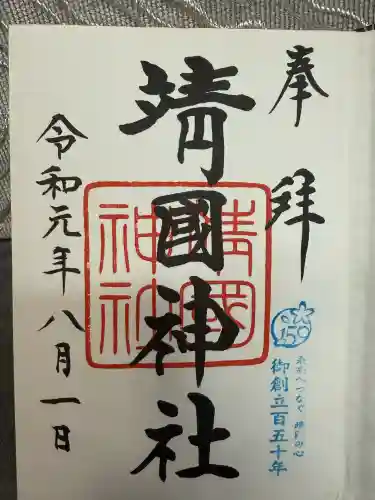 奉拝
靖國神社
靖國神社
令和元年八月一日
150
未来へつなぐ
御創立百五十年